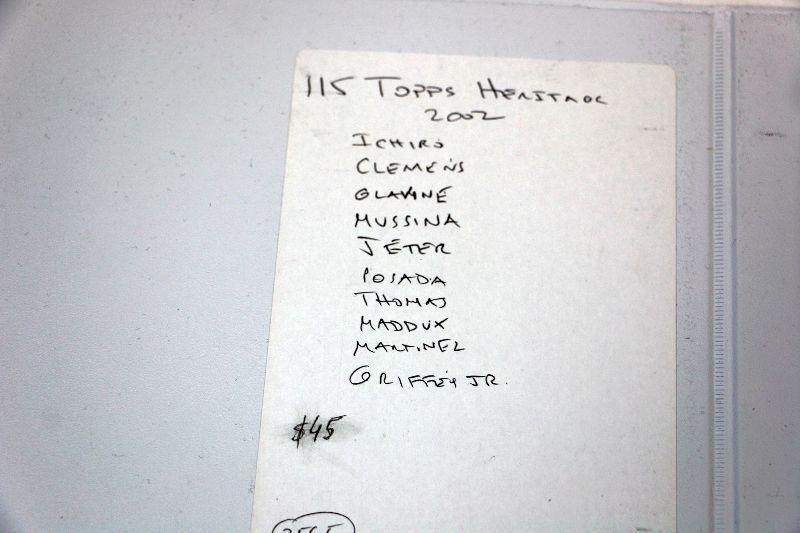 115 TOPPS HERITAGE
2002
ICHIRO
CLEMENS
GLAVINE
MUSSINA
JETER
POSADA
THOMAS
MADDUX
MARTINEZ
GRIFFEY JR.
$45